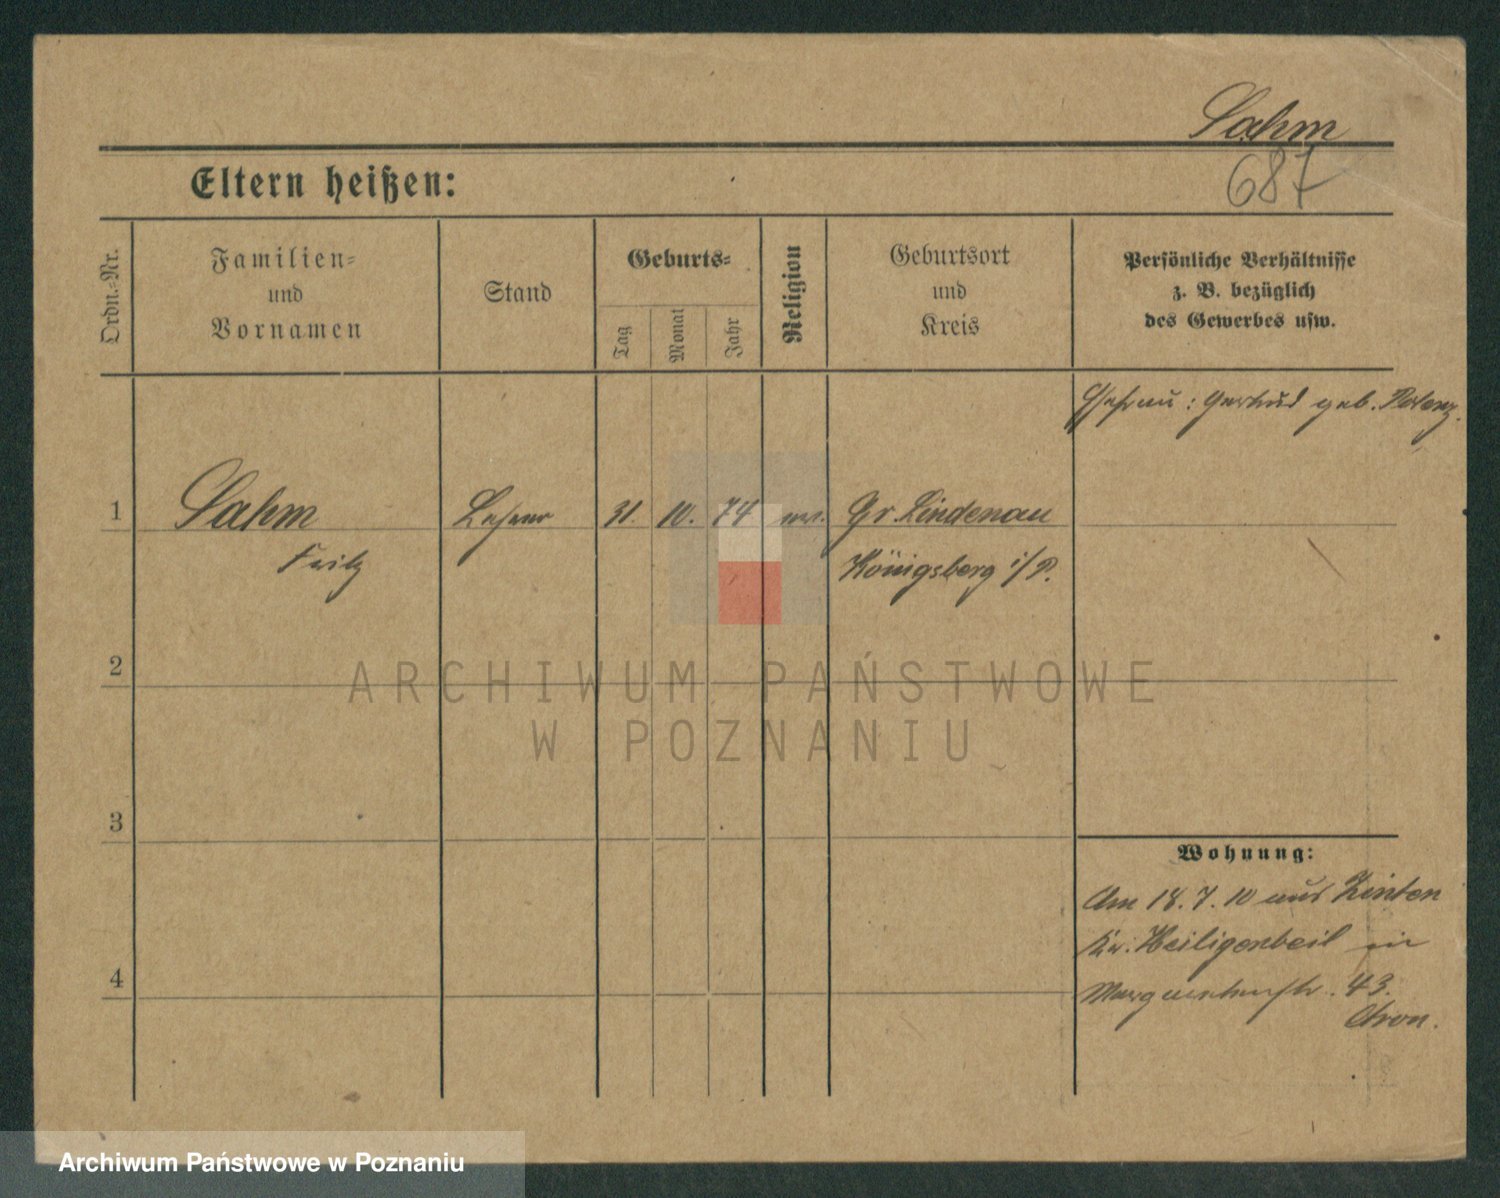 Sahm
687
Eltern heißen:
Ordn.-Nr.
Familien-
und
Vornamen
Stand
Geburts-
Tag
Monat
Jahr
Religion
Geburtsort
und
Kreis
Persönliche Verhältnisse
z. B. bezüglich
des Gewerbes usw.
Ehefrau: Gertrud geb.
1
Sahm
Lehrer
31. 10. 74
ev.
Gr. Lindenau
Fritz
Königsberg i/P.
2
ARCHIWUM PAŃSTWOWE
W POZNANIU
3
Wohnung:
Am 18. 7. 10 aus Zinten
Kr. Heiligenbeil in
Margaretenstr. 43.
4
Archiwum Państwowe w Poznaniu